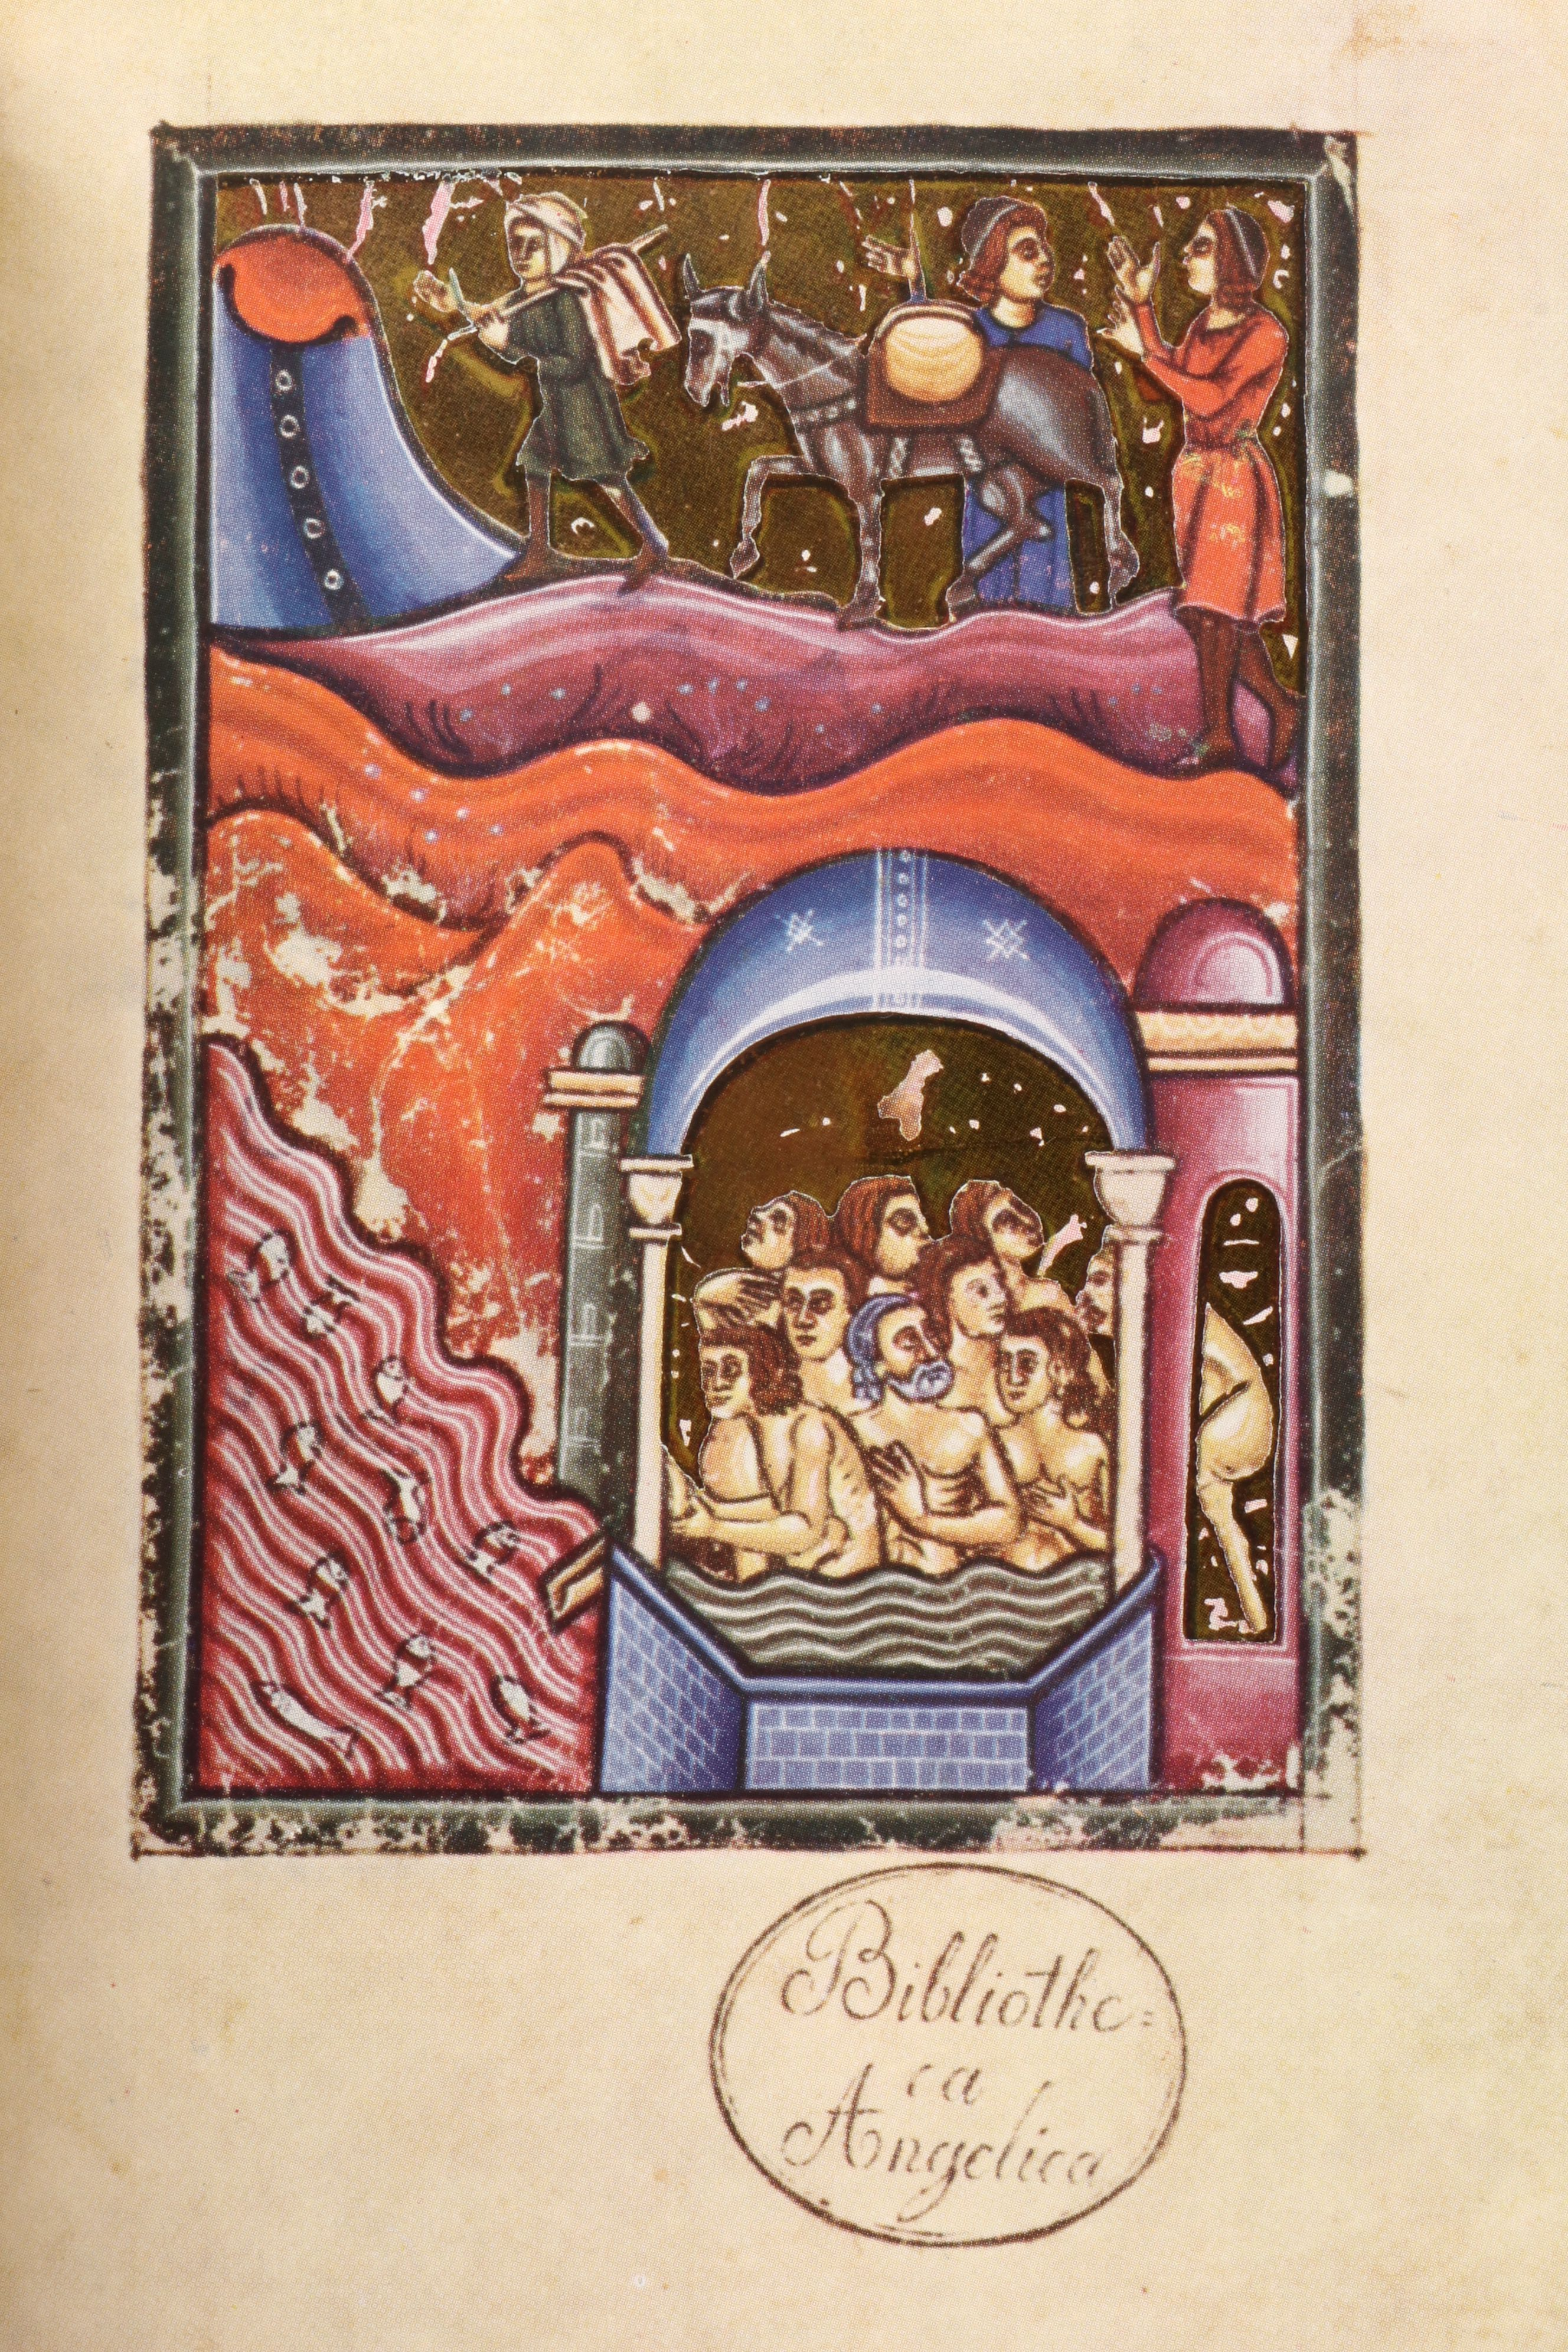 Bibliothe=
ca
Angelica